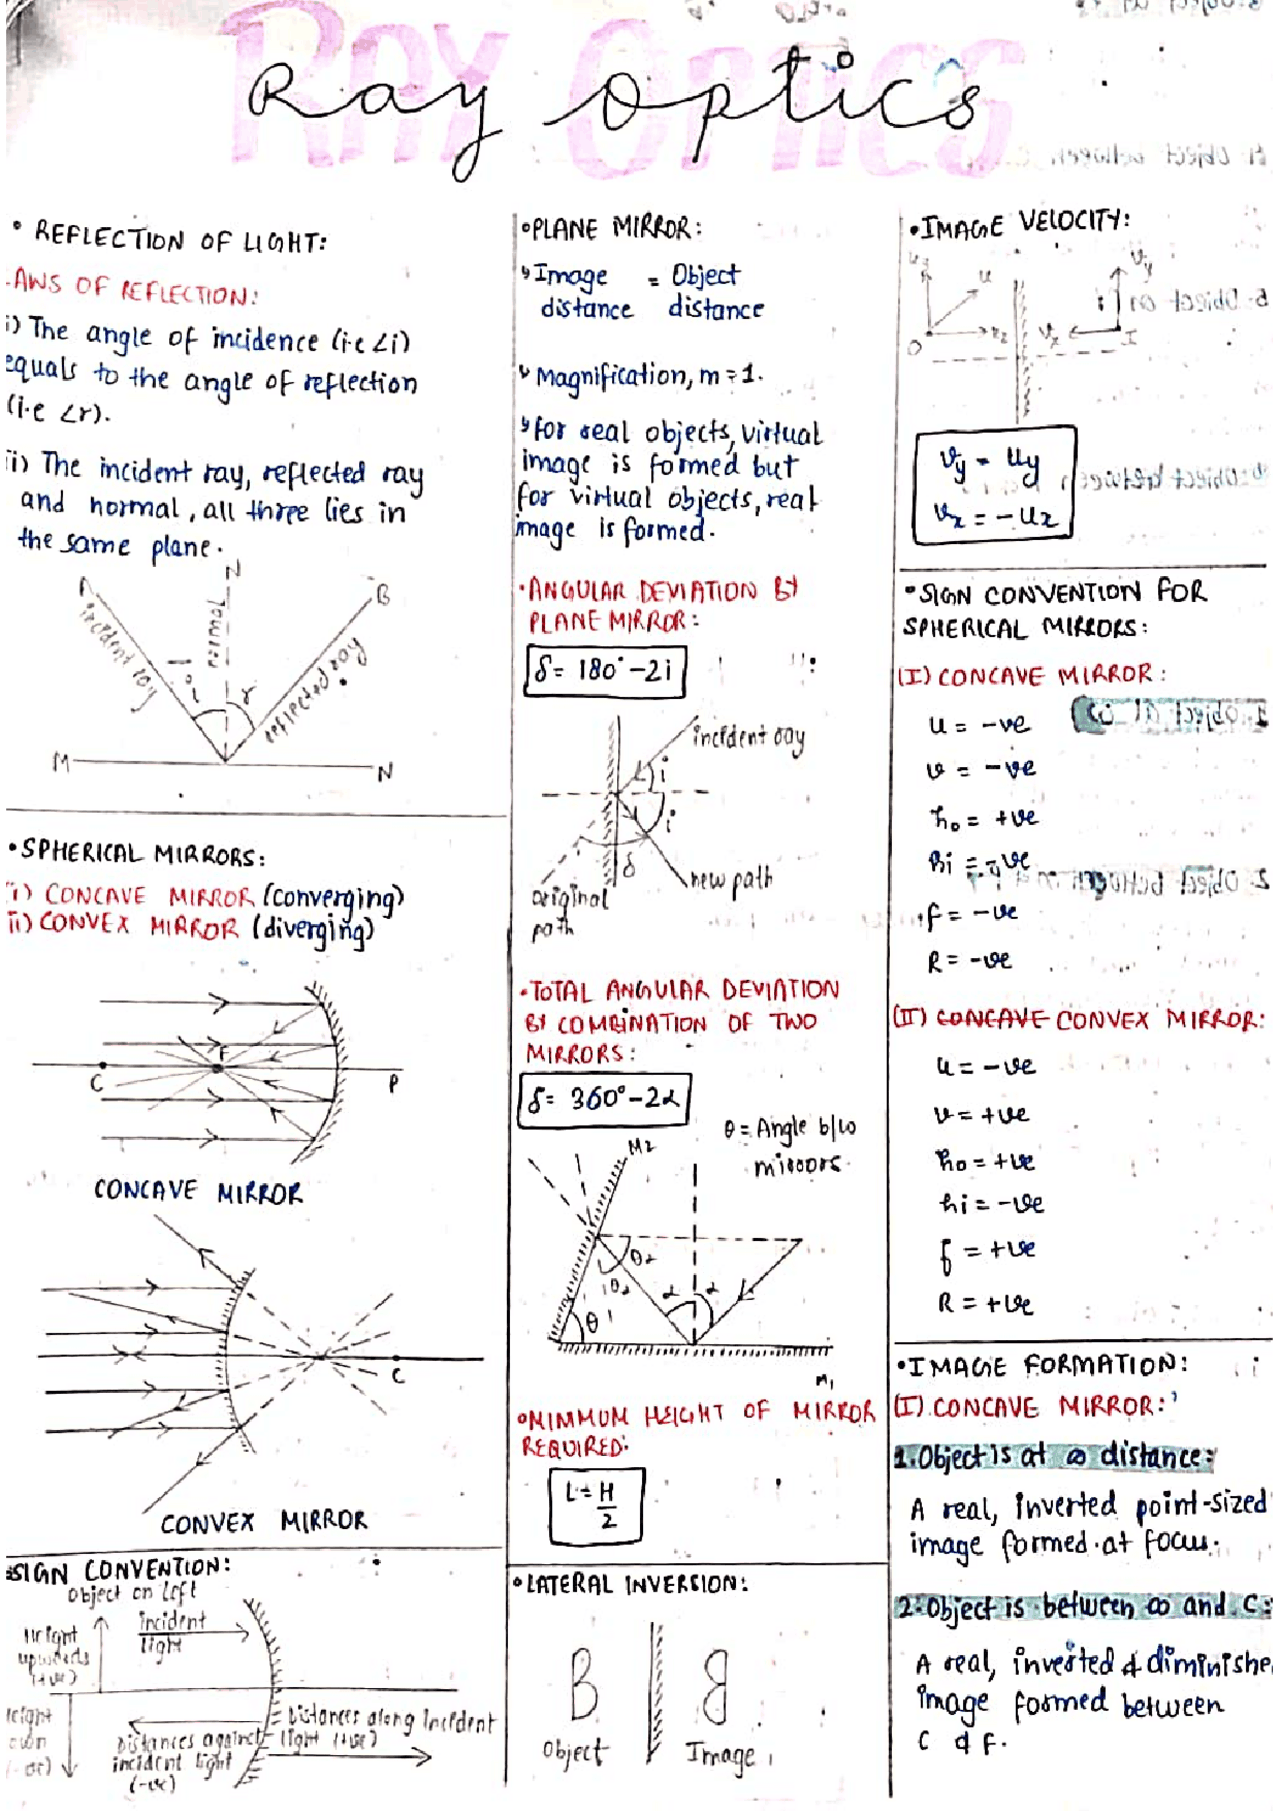 Ray Optics
• REFLECTION OF LIGHT:
AWS OF REFLECTION:
i) The angle of incidence (i.e ∠i)
equals to the angle of reflection
(i.e ∠r).
ii) The incident ray, reflected ray
and normal, all three lies in
the same plane.
N
B
incident ray
normal
reflected ray
i
r
M
N
• SPHERICAL MIRRORS:
i) CONCAVE MIRROR (converging)
ii) CONVEX MIRROR (diverging)
C
F
P
CONCAVE MIRROR
C
CONVEX MIRROR
SIGN CONVENTION:
Object on left
incident
light
Height
upwards
(+ve)
Distances along incident
light (+ve)
Distances against
incident light
(-ve)
• PLANE MIRROR:
Image = Object
distance distance
Magnification, m = 1.
for real objects, virtual
image is formed but
for virtual objects, real
image is formed.
• ANGULAR DEVIATION BY
PLANE MIRROR:
δ = 180° - 2i
incident ray
i
i
δ
original
path
new path
• TOTAL ANGULAR DEVIATION
BY COMBINATION OF TWO
MIRRORS:
δ = 360° - 2α
θ = Angle b/w
mirrors.
M2
θ2
θ2
α
α
θ
M1
• MINIMUM HEIGHT OF MIRROR
REQUIRED:
L = H
2
• LATERAL INVERSION:
B
Object
Image
• IMAGE VELOCITY:
u
vy
O
vx
I
vy = uy
vx = -ux
• SIGN CONVENTION FOR
SPHERICAL MIRRORS:
(I) CONCAVE MIRROR:
u = -ve
v = -ve
ho = +ve
hi = -ve
f = -ve
R = -ve
(II) CONCAVE CONVEX MIRROR:
u = -ve
v = +ve
ho = +ve
hi = -ve
f = +ve
R = +ve
• IMAGE FORMATION:
(I) CONCAVE MIRROR:
1. Object is at ∞ distance:
A real, inverted point-sized
image formed at focus.
2. Object is between ∞ and C:
A real, inverted & diminishe
image formed between
C & F.